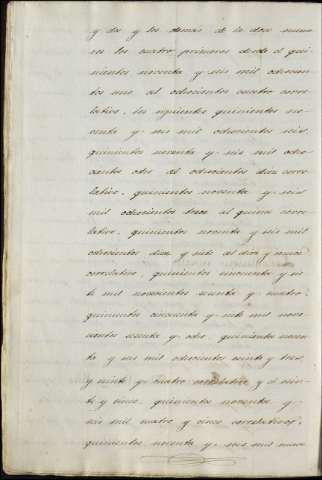 y dos y los demas de la doce nume
ros los cuatro primeros desde el qui
nientos noventa y seis mil ochocien
tos uno al ochocientos cuatro corre
lativo, los siguientes quinientos no
venta y seis mil ochocientos seis,
quinientos noventa y seis mil ocho
cientos ocho al ochocientos diez corre
lativo, quinientos noventa y seis
mil ochocientos trece al quince corre
lativo, quinientos noventa y seis mil
ochocientos diez y siete al diez y nueve
correlativo, quinientos noventa y sie
te mil novecientos sesenta y cuatro,
quinientos cincuenta y siete mil nove
cientos sesenta y ocho, quinientos noven
ta y seis mil ochocientos veinte y tres,
y veinte y cuatro correlativo y el vein
te y cinco, quinientos noventa y
seis mil cuatro y cinco correlativos,
quinientos noventa y seis mil nueve